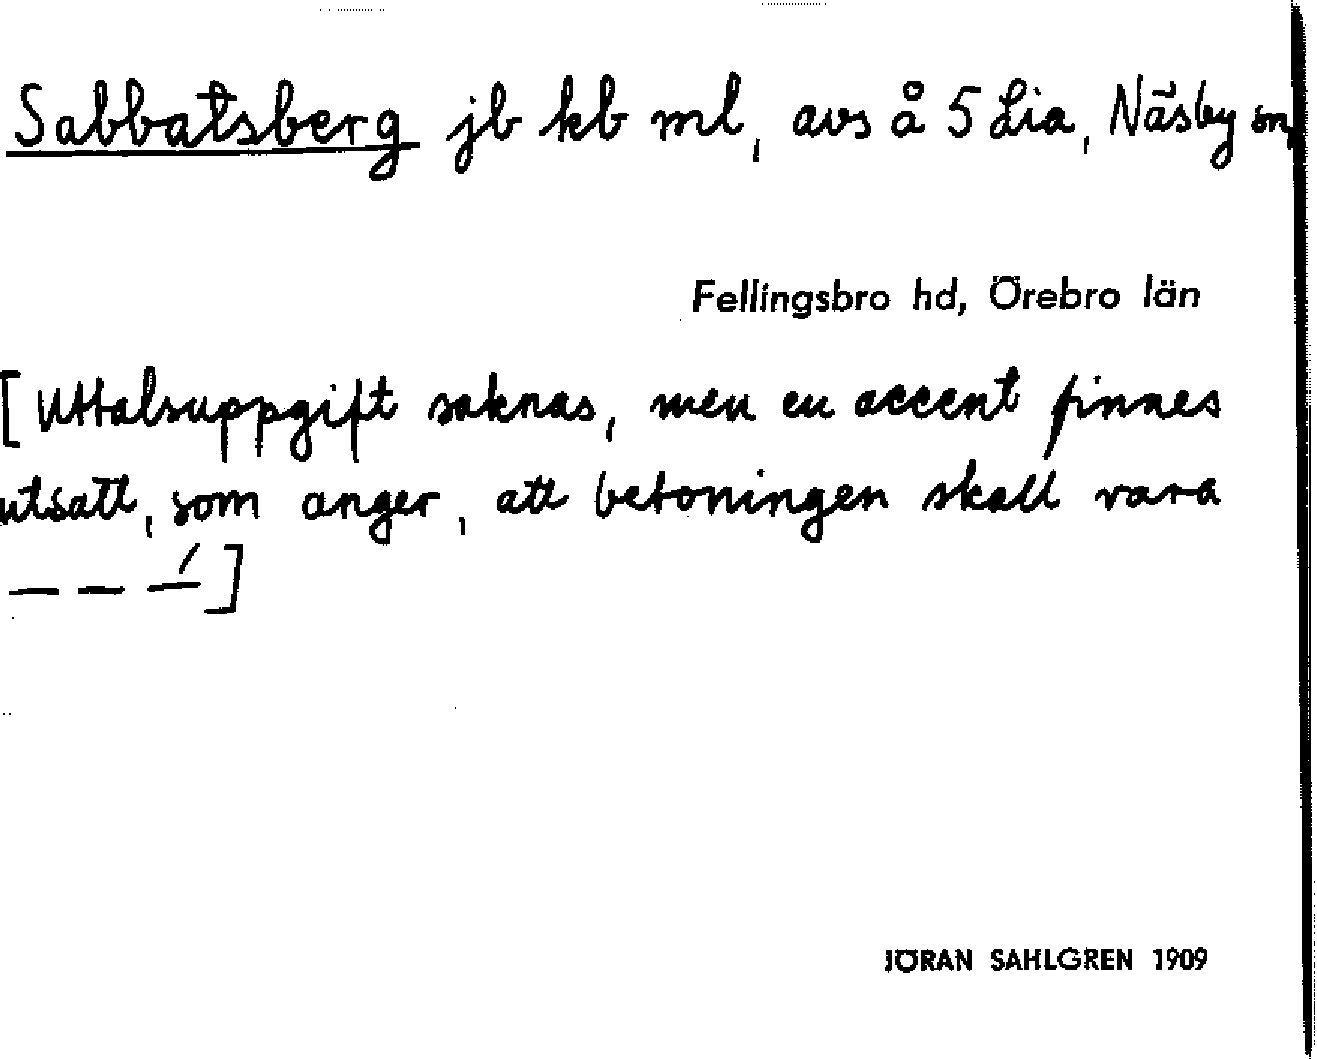 Sabbatsberg jb kb ml, avs å 5 Lia, Näsby sn
Fellingsbro hd, Örebro län
[Uttalsuppgift saknas, men en accent finnes
utsatt, som anger, att betoningen skall vara
— — —́]
JÖRAN SAHLGREN 1909